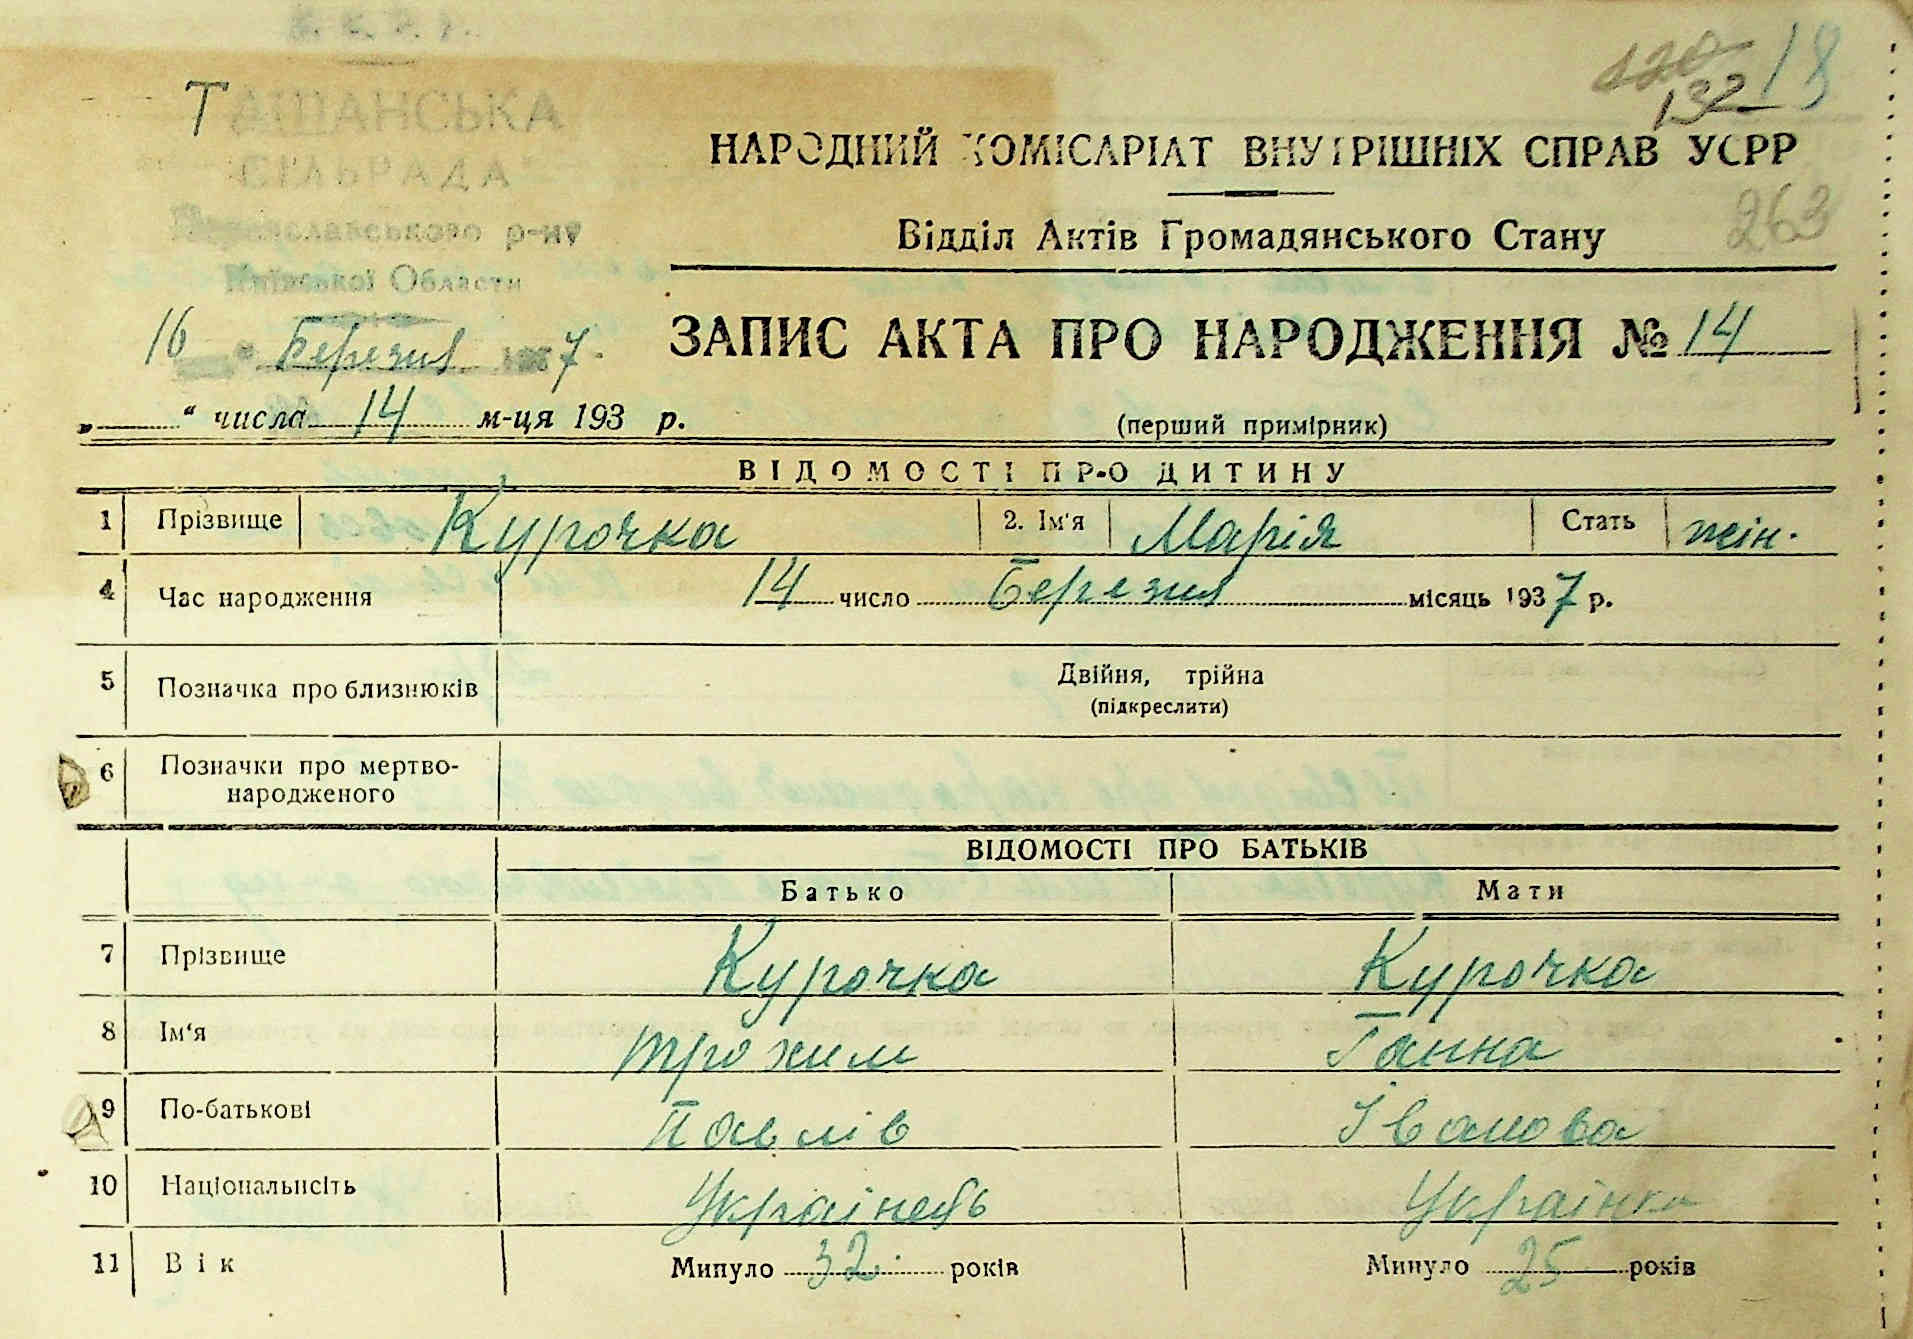 У. С. Р. Р.
Т
120
132
18
ДІВИЧАНСЬКА
СІЛЬРАДА
Переяславського р-ну
Київської Області
НАРОДНИЙ КОМІСАРІАТ ВНУТРІШНІХ СПРАВ УСРР
Відділ Актів Громадянського Стану
263
16 " Березня 1937.
ЗАПИС АКТА ПРО НАРОДЖЕННЯ № 14
„ “ числа 14 м-ця 193 р.
(перший примірник)
ВІДОМОСТІ ПРО ДИТИНУ
1 Прізвище Курочка 2. Ім'я Марія Стать жін.
4 Час народження 14 число Березня місяць 1937 р.
5 Позначка про близнюків Двійня, трійна
(підкреслити)
6 Позначки про мертво-
народженого
ВІДОМОСТІ ПРО БАТЬКІВ
Батько Мати
7 Прізвище Курочка Курочка
8 Ім‘я Трохим Ганна
9 По-батькові Павлів Іванова
10 Національність Українець Українка
11 Вік Минуло 32 років Минуло 25 років